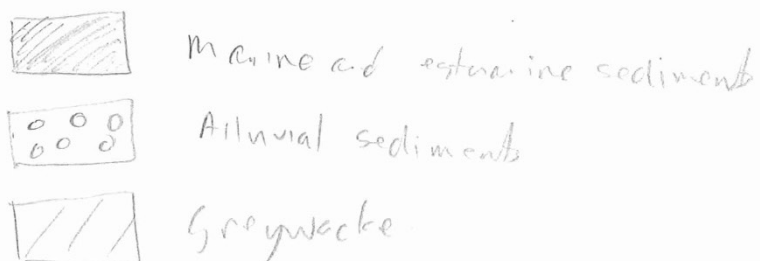 Marine and estuarine sediments
Alluvial sediments
Greywacke